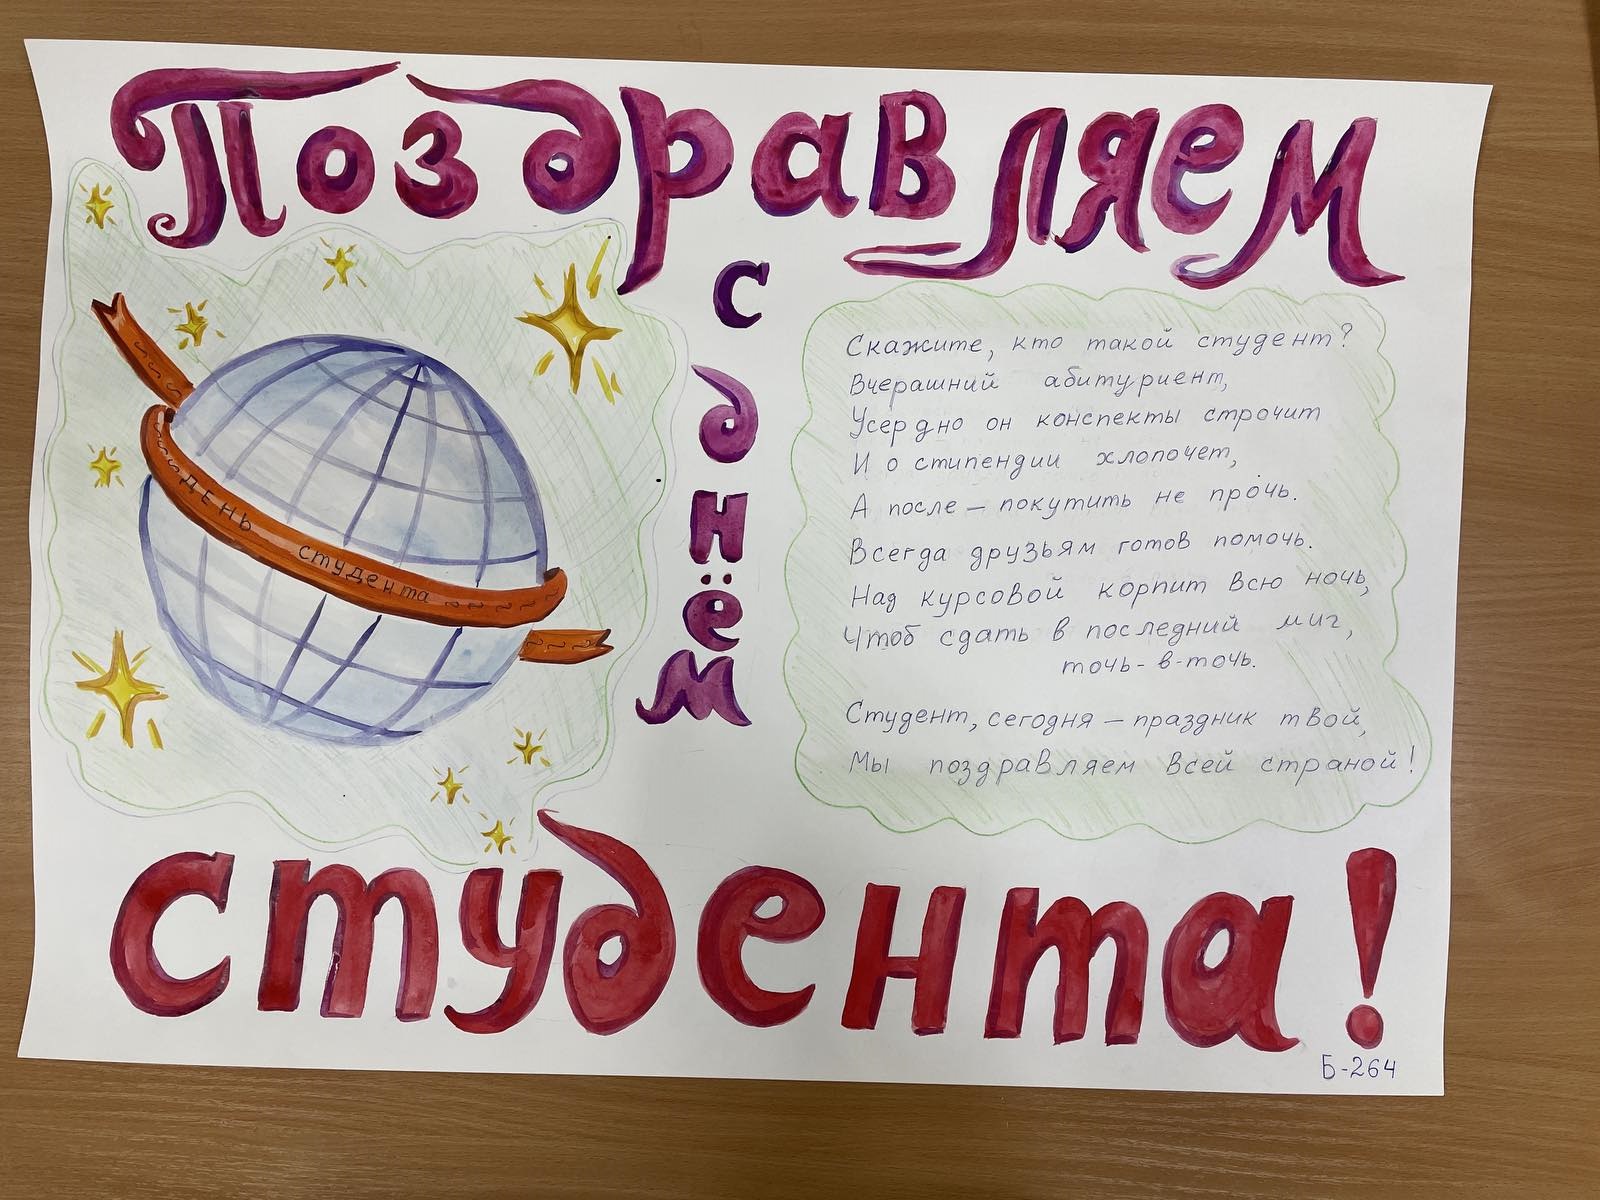 Поздравляем
с
днём
ДЕНЬ студента
Скажите, кто такой студент?
Вчерашний абитуриент,
Усердно он конспекты строчит
И о стипендии хлопочет,
А после — покутить не прочь.
Всегда друзьям готов помочь.
Над курсовой корпит всю ночь,
Чтоб сдать в последний миг,
точь-в-точь.
Студент, сегодня — праздник твой,
Мы поздравляем всей страной!
студента!
Б-264